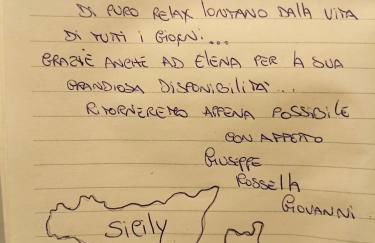 DI PURO RELAX LONTANO DALLA VITA
DI TUTTI I GIORNI...
GRAZIE ANCHE AD ELENA PER LA SUA
GRANDIOSA DISPONIBILITÀ...
RITORNEREMO APPENA POSSIBILE
CON AFFETTO
GIUSEPPE
ROSSELLA
GIOVANNI
Sicily